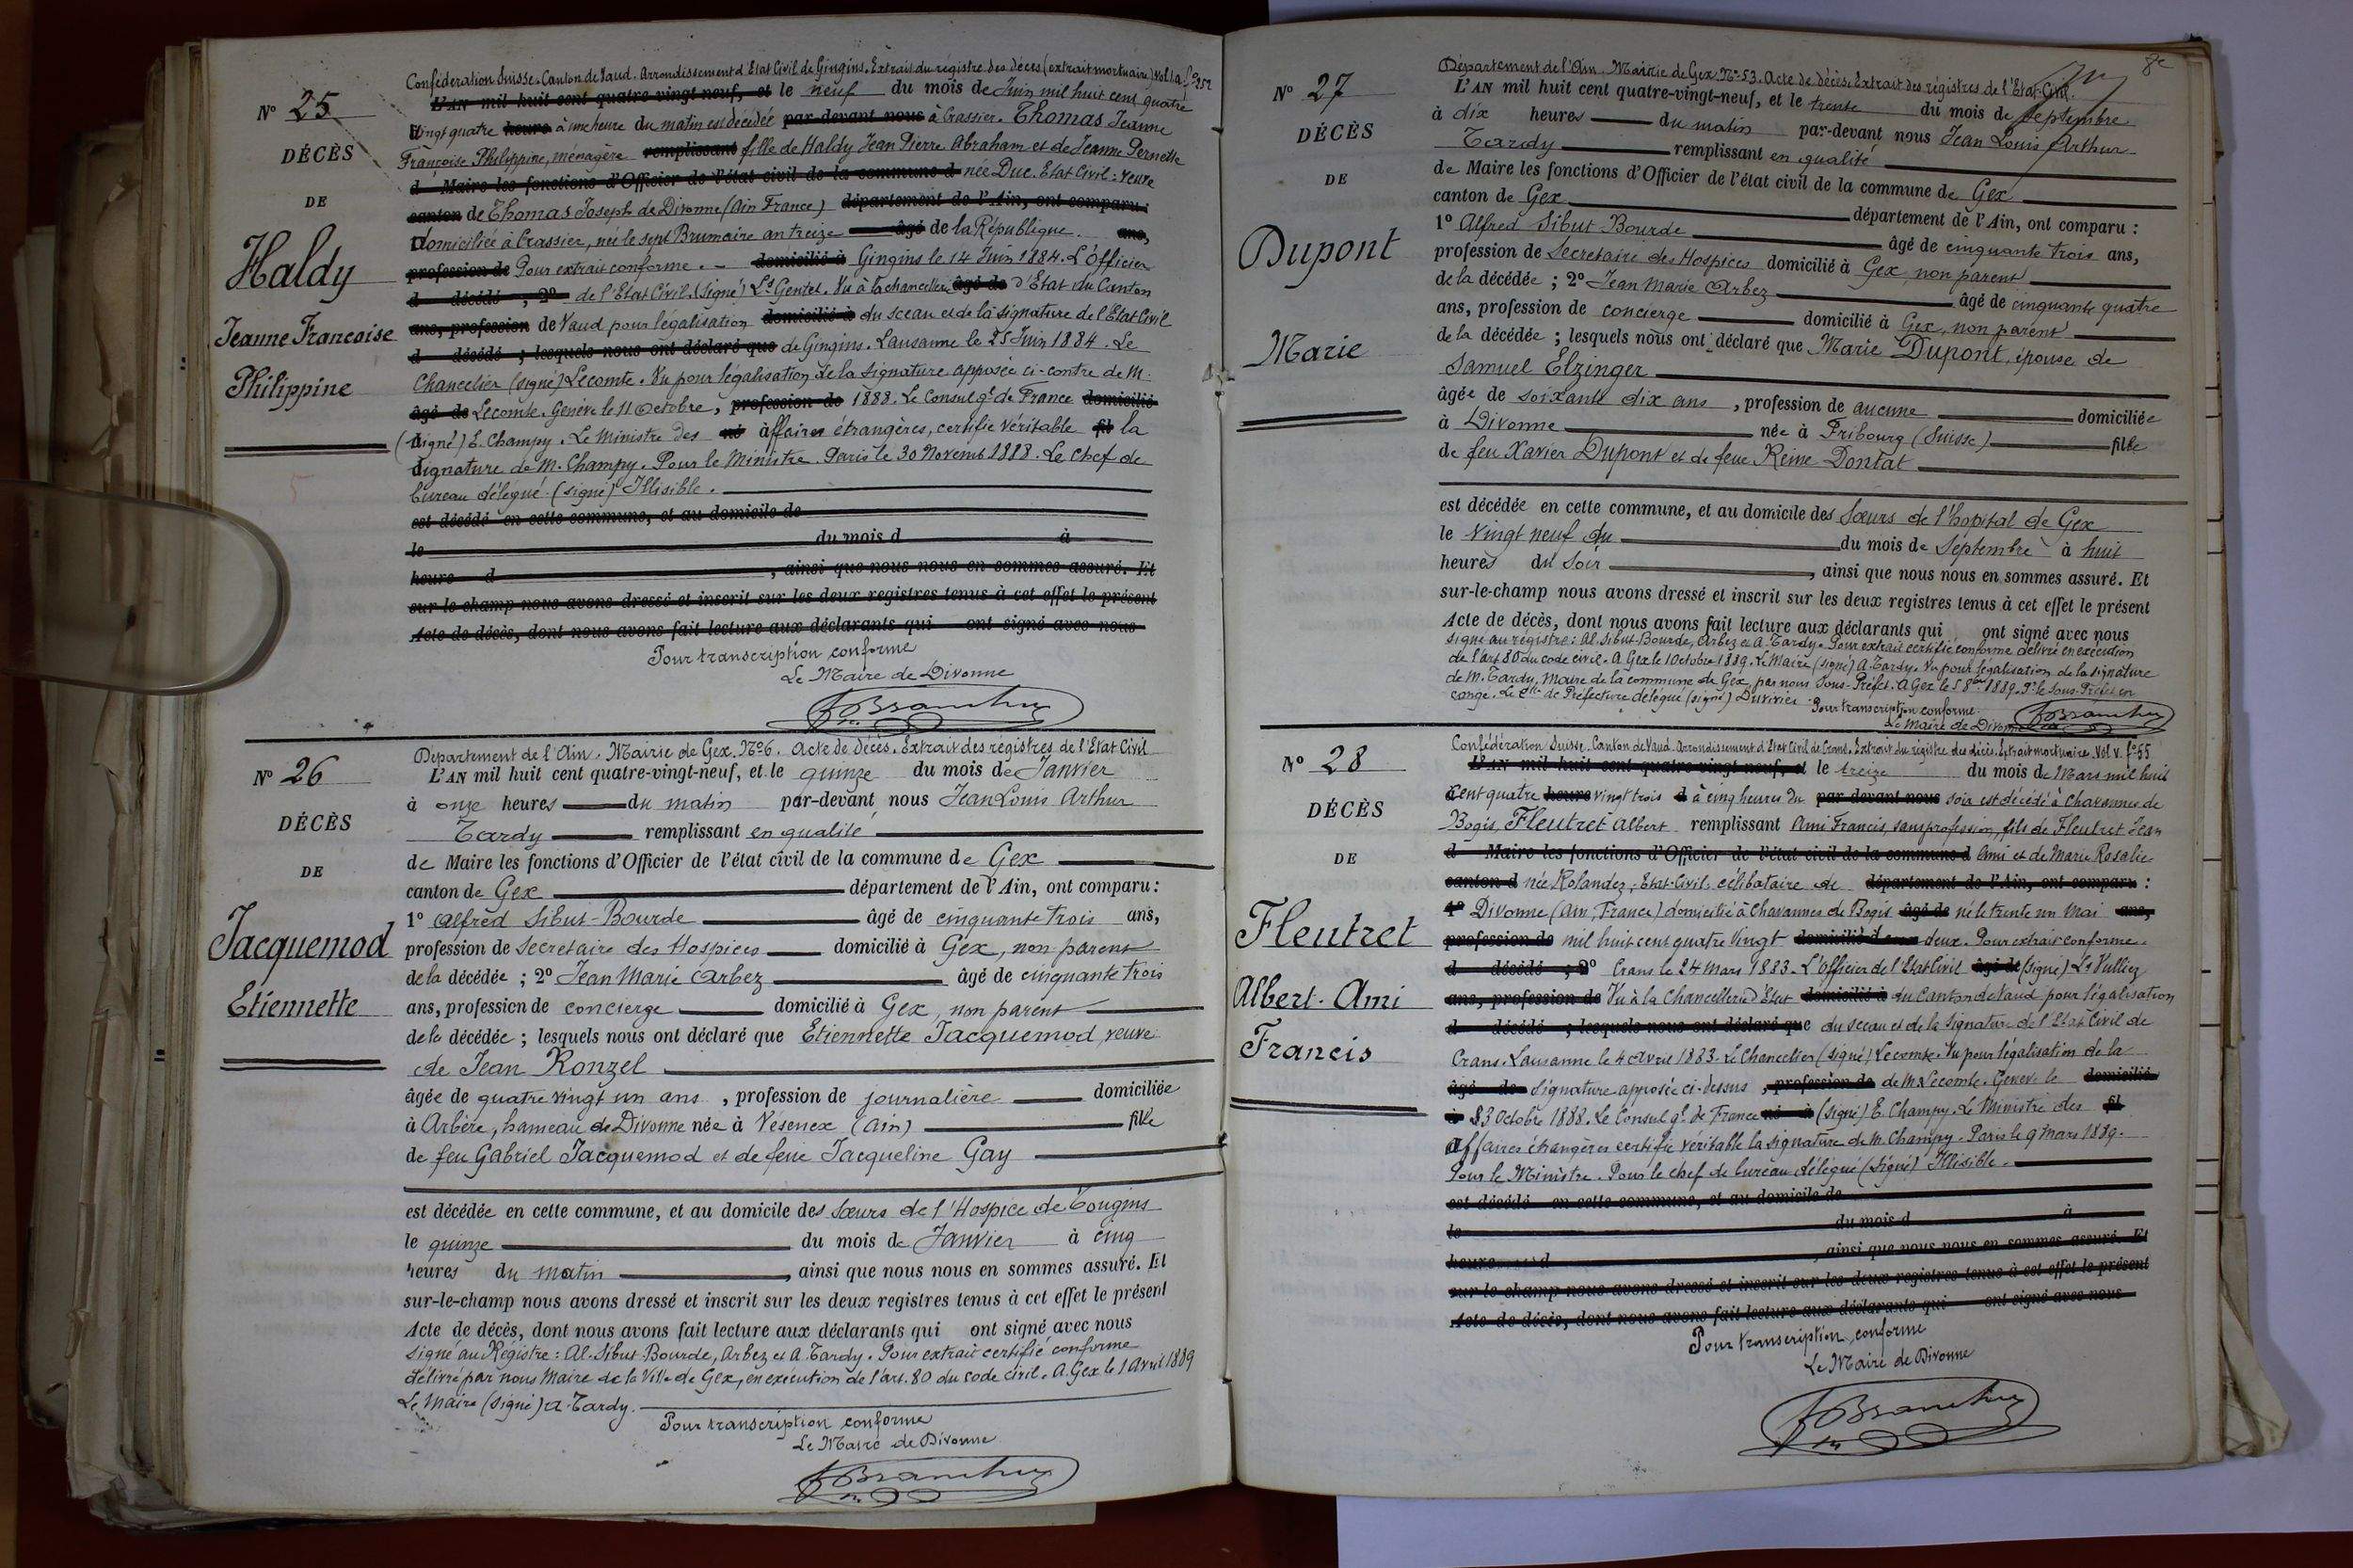 Nº 25
DÉCÈS
DE
Haldy
Jeanne Francoise
Philippine
Confédération Suisse. Canton de Vaud. Arrondissement d'Etat Civil de Gingins. Extrait du régistre des décès (extrait mortuaire) Vol. 1 a. fº 252
L'AN mil huit cent quatre-vingt-neuf, et le neuf du mois de Juin mil huit cent quatre
vingt quatre heure à une heure du matin est décédée par-devant nous à Crassier. Thomas Jeanne
Françoise Philippine, ménagère remplissant fille de Haldy Jean Pierre Abraham et de Jeanne Pernette
d Maire les fonctions d'Officier de l'état civil de la commune d née Duc. Etat Civil : Veuve
canton de Thomas Joseph de Divonne (Ain France) département de l'Ain, ont comparu :
domiciliée à Crassier, née le sept Brumaire an treize âgé de la République. ans,
profession de Pour extrait conforme. - domicilié à Gingins le 14 Juin 1884. L'Officier
d décédé ; 2º de l'Etat Civil. (Signé) Ls Gentet. Vu à la chancellerie âgé de d'Etat du Canton
ans, profession de Vaud pour légalisation domicilié à du sceau et de la signature de l'Etat Civil
d décédé ; lesquels nous ont déclaré que de Gingins. Lausanne le 25 Juin 1884. Le
Chancelier (signé) Lecomte. Vu pour légalisation de la signature apposée ci-contre de M.
âgé de Lecomte. Genève le 11 Octobre, profession de 1888. Le Consul gl de France domicilié
(signé) E. Champy. Le Ministre des né affaires étrangères, certifie véritable fil la
signature de M. Champy. Pour le Ministre. Paris le 30 Novemb 1888. Le Chef de
bureau délégué. (signé) Illisible.
est décédé en cette commune, et au domicile de
le du mois d à
heure d , ainsi que nous nous en sommes assuré. Et
sur-le-champ nous avons dressé et inscrit sur les deux registres tenus à cet effet le présent
Acte de décès, dont nous avons fait lecture aux déclarants qui ont signé avec nous
Pour transcription conforme
Le Maire de Divonne
Nº 26
DÉCÈS
DE
Jacquemod
Etiennette
Département de l'Ain. Mairie de Gex. Nº 6. Acte de décès. Extrait des régistres de l'Etat Civil
L'AN mil huit cent quatre-vingt-neuf, et le quinze du mois de Janvier
à onze heures du matin par-devant nous Jean Louis Arthur
Tardy remplissant en qualité
de Maire les fonctions d'Officier de l'état civil de la commune de Gex
canton de Gex département de l'Ain, ont comparu :
1º Alfred Sibut-Bourde âgé de cinquante trois ans,
profession de Secretaire des Hospices domicilié à Gex, non parent
de la décédée ; 2º Jean Marie Arbez âgé de cinquante trois
ans, profession de concierge domicilié à Gex, non parent
de la décédée ; lesquels nous ont déclaré que Etiennette Jacquemod, veuve
de Jean Ronzel
âgée de quatre vingt un ans , profession de journalière domiciliée
à Arbère, hameau de Divonne née à Vesenex (Ain) fille
de feu Gabriel Jacquemod et de feue Jacqueline Gay
est décédée en cette commune, et au domicile des Sœurs de l'Hospice de Tougins
le quinze du mois de Janvier à cinq
heures du matin , ainsi que nous nous en sommes assuré. Et
sur-le-champ nous avons dressé et inscrit sur les deux registres tenus à cet effet le présent
Acte de décès, dont nous avons fait lecture aux déclarants qui ont signé avec nous
Signé au Régistre : Al. Sibut-Bourde, Arbez et A. Tardy. Pour extrait certifié conforme
délivré par nous Maire de la Ville de Gex, en execution de l'art. 80 du code civil. A Gex le 1 Avril 1889
Le Maire (signé) A. Tardy.
Pour transcription conforme
Le Maire de Divonne
8e
Nº 27
DÉCÈS
DE
Dupont
Marie
Département de l'Ain. Mairie de Gex. Nº 53. Acte de décès. Extrait des régistres de l'Etat-Civil.
L'AN mil huit cent quatre-vingt-neuf, et le trente du mois de Septembre
à dix heures du matin par-devant nous Jean Louis Arthur
Tardy remplissant en qualité
de Maire les fonctions d'Officier de l'état civil de la commune de Gex
canton de Gex département de l'Ain, ont comparu :
1º Alfred Sibut Bourde âgé de cinquante trois ans,
profession de Secretaire des Hospices domicilié à Gex, non parent
de la décédée ; 2º Jean Marie Arbez âgé de cinquante quatre
ans, profession de concierge domicilié à Gex, non parent
de la décédée ; lesquels nous ont déclaré que Marie Dupont, épouse de
Samuel Elzinger
âgée de soixante dix ans , profession de aucune domiciliée
à Divonne née à Fribourg (Suisse) fille
de feu Xavier Dupont et de feue Reine Dontat
est décédée en cette commune, et au domicile des Sœurs de l'hopital de Gex
le vingt neuf du du mois de Septembre à huit
heures du soir , ainsi que nous nous en sommes assuré. Et
sur-le-champ nous avons dressé et inscrit sur les deux registres tenus à cet effet le présent
Acte de décès, dont nous avons fait lecture aux déclarants qui ont signé avec nous
Signé au régistre : Al. Sibut-Bourde, Arbez et A. Tardy. Pour extrait certifié conforme délivré en exécution
de l'art 80 du code civil. A Gex le 1 Octobre 1889. Le Maire (signé) A. Tardy. Vu pour légalisation de la signature
de M. Tardy, Maire de la commune de Gex, par nous Sous-Préfet. A Gex le 5 8bre 1889. Pr le Sous-Préfet en
congé. Le Cller de Préfecture délégué (signé) Duvivier
Pour transcription conforme
Le Maire de Divonne
Nº 28
DÉCÈS
DE
Fleutret
Albert-Ami
Francis
Confédération Suisse. Canton de Vaud. Arrondissement d'Etat Civil de Crans. Extrait du régistre des décès. Extrait mortuaire. Vol. V. fº 55
L'AN mil huit cent quatre-vingt-neuf, et le treize du mois de Mars mil huit
cent quatre heure vingt trois d à cinq heures du par-devant nous soir est décédé à Chavannes de
Bogis, Fleutret Albert remplissant Ami Francis, sans profession, fils de Fleutret Jean
d Maire les fonctions d'Officier de l'état civil de la commune d Ami et de Marie Rosalie
canton d née Rolandez, Etat-Civil célibataire de département de l'Ain, ont comparu :
1º Divonne (Ain, France) domicilié à Chavannes de Bogis âgé de né le trente un Mai ans,
profession de mil huit cent quatre vingt domicilié à deux. Pour extrait conforme.
d décédé ; 2º Crans le 24 Mars 1883. L'Officier de l'Etat Civil âgé de (signé) Ls Vulliez
ans, profession de Vu à la Chancellerie d'Etat domicilié à du Canton de Vaud pour légalisation
d décédé ; lesquels nous ont déclaré que du sceau et de la signature de l'Etat Civil de
Crans. Lausanne le 4 Avril 1883. Le Chancelier (signé) Lecomte. Vu pour légalisation de la
âgé de signature apposée ci-dessus , profession de de M. Lecomte. Genève le domicilié
à 23 Octobre 1888. Le Consul gl de France né à (signé) E. Champy. Le Ministre des fil
affaires étrangères certifie véritable la signature de M. Champy. Paris le 9 Mars 1889.
Pour le Ministre. Pour le chef de bureau délégué (signé) Illisible.
est décédé en cette commune, et au domicile de
le du mois d à
heure d , ainsi que nous nous en sommes assuré. Et
sur-le-champ nous avons dressé et inscrit sur les deux registres tenus à cet effet le présent
Acte de décès, dont nous avons fait lecture aux déclarants qui ont signé avec nous
Pour transcription conforme
Le Maire de Divonne